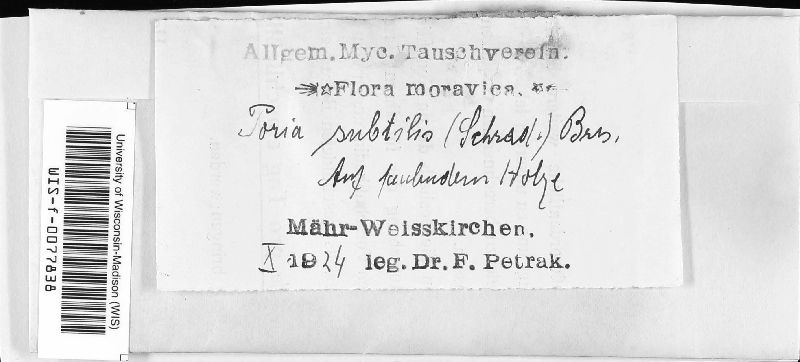 Allgem. Myc. Tauschverein.
Flora moravica.
Poria subtilis (Schrad.) Bres.
Auf faulendem Holze
Mähr-Weisskirchen.
X 1924 leg. Dr. F. Petrak.
University of Wisconsin-Madison (WIS)
WIS-f-0077838